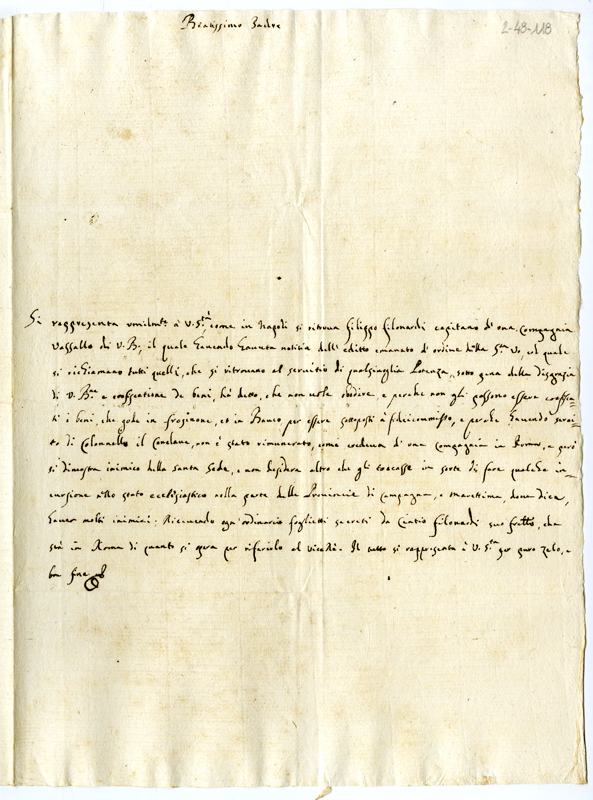 Beatissimo Padre
2-48-118
Si rappresenta umilmte à V. Stà come in Napoli si ritrova Filippo Filonardi capitano d' una Compagnia
Vassallo di V. Bne il quale havendo havuta notitia dell' editto emanato d' ordine della Stà Va, col quale
si richiamano tutti quelli, che si ritrovano al servitio di qualsivoglia Potenza, sotto pena della disgrazia
di V. Bne e confiscatione de beni, hà detto, che non vole obedire, e perche non gli possono essere confisca-
ti i beni, che gode in Frosinone, et in Bauco, per essere sottoposti à fideicommisso, e perche havendo servi-
to di Colonnello il Conclave, non è stato rimunerato, come credeva d' una compagnia in Roma, e però
si dimostra inimico della Santa Sede, e non desidera altro che gli toccasse in sorte di fare qualche in-
cursione allo stato ecclesiastico nella parte delle Provincie di Campagna, e marittima, dove dice,
haver molti inimici: Ricevendo ogn' ordinario foglietti secreti da Cintio Filonardi suo frello, che
stà in Roma di quanto si opera per riferirlo al vicerè. Il tutto si rappresenta à V. Stà per puro zelo, e
bon fine